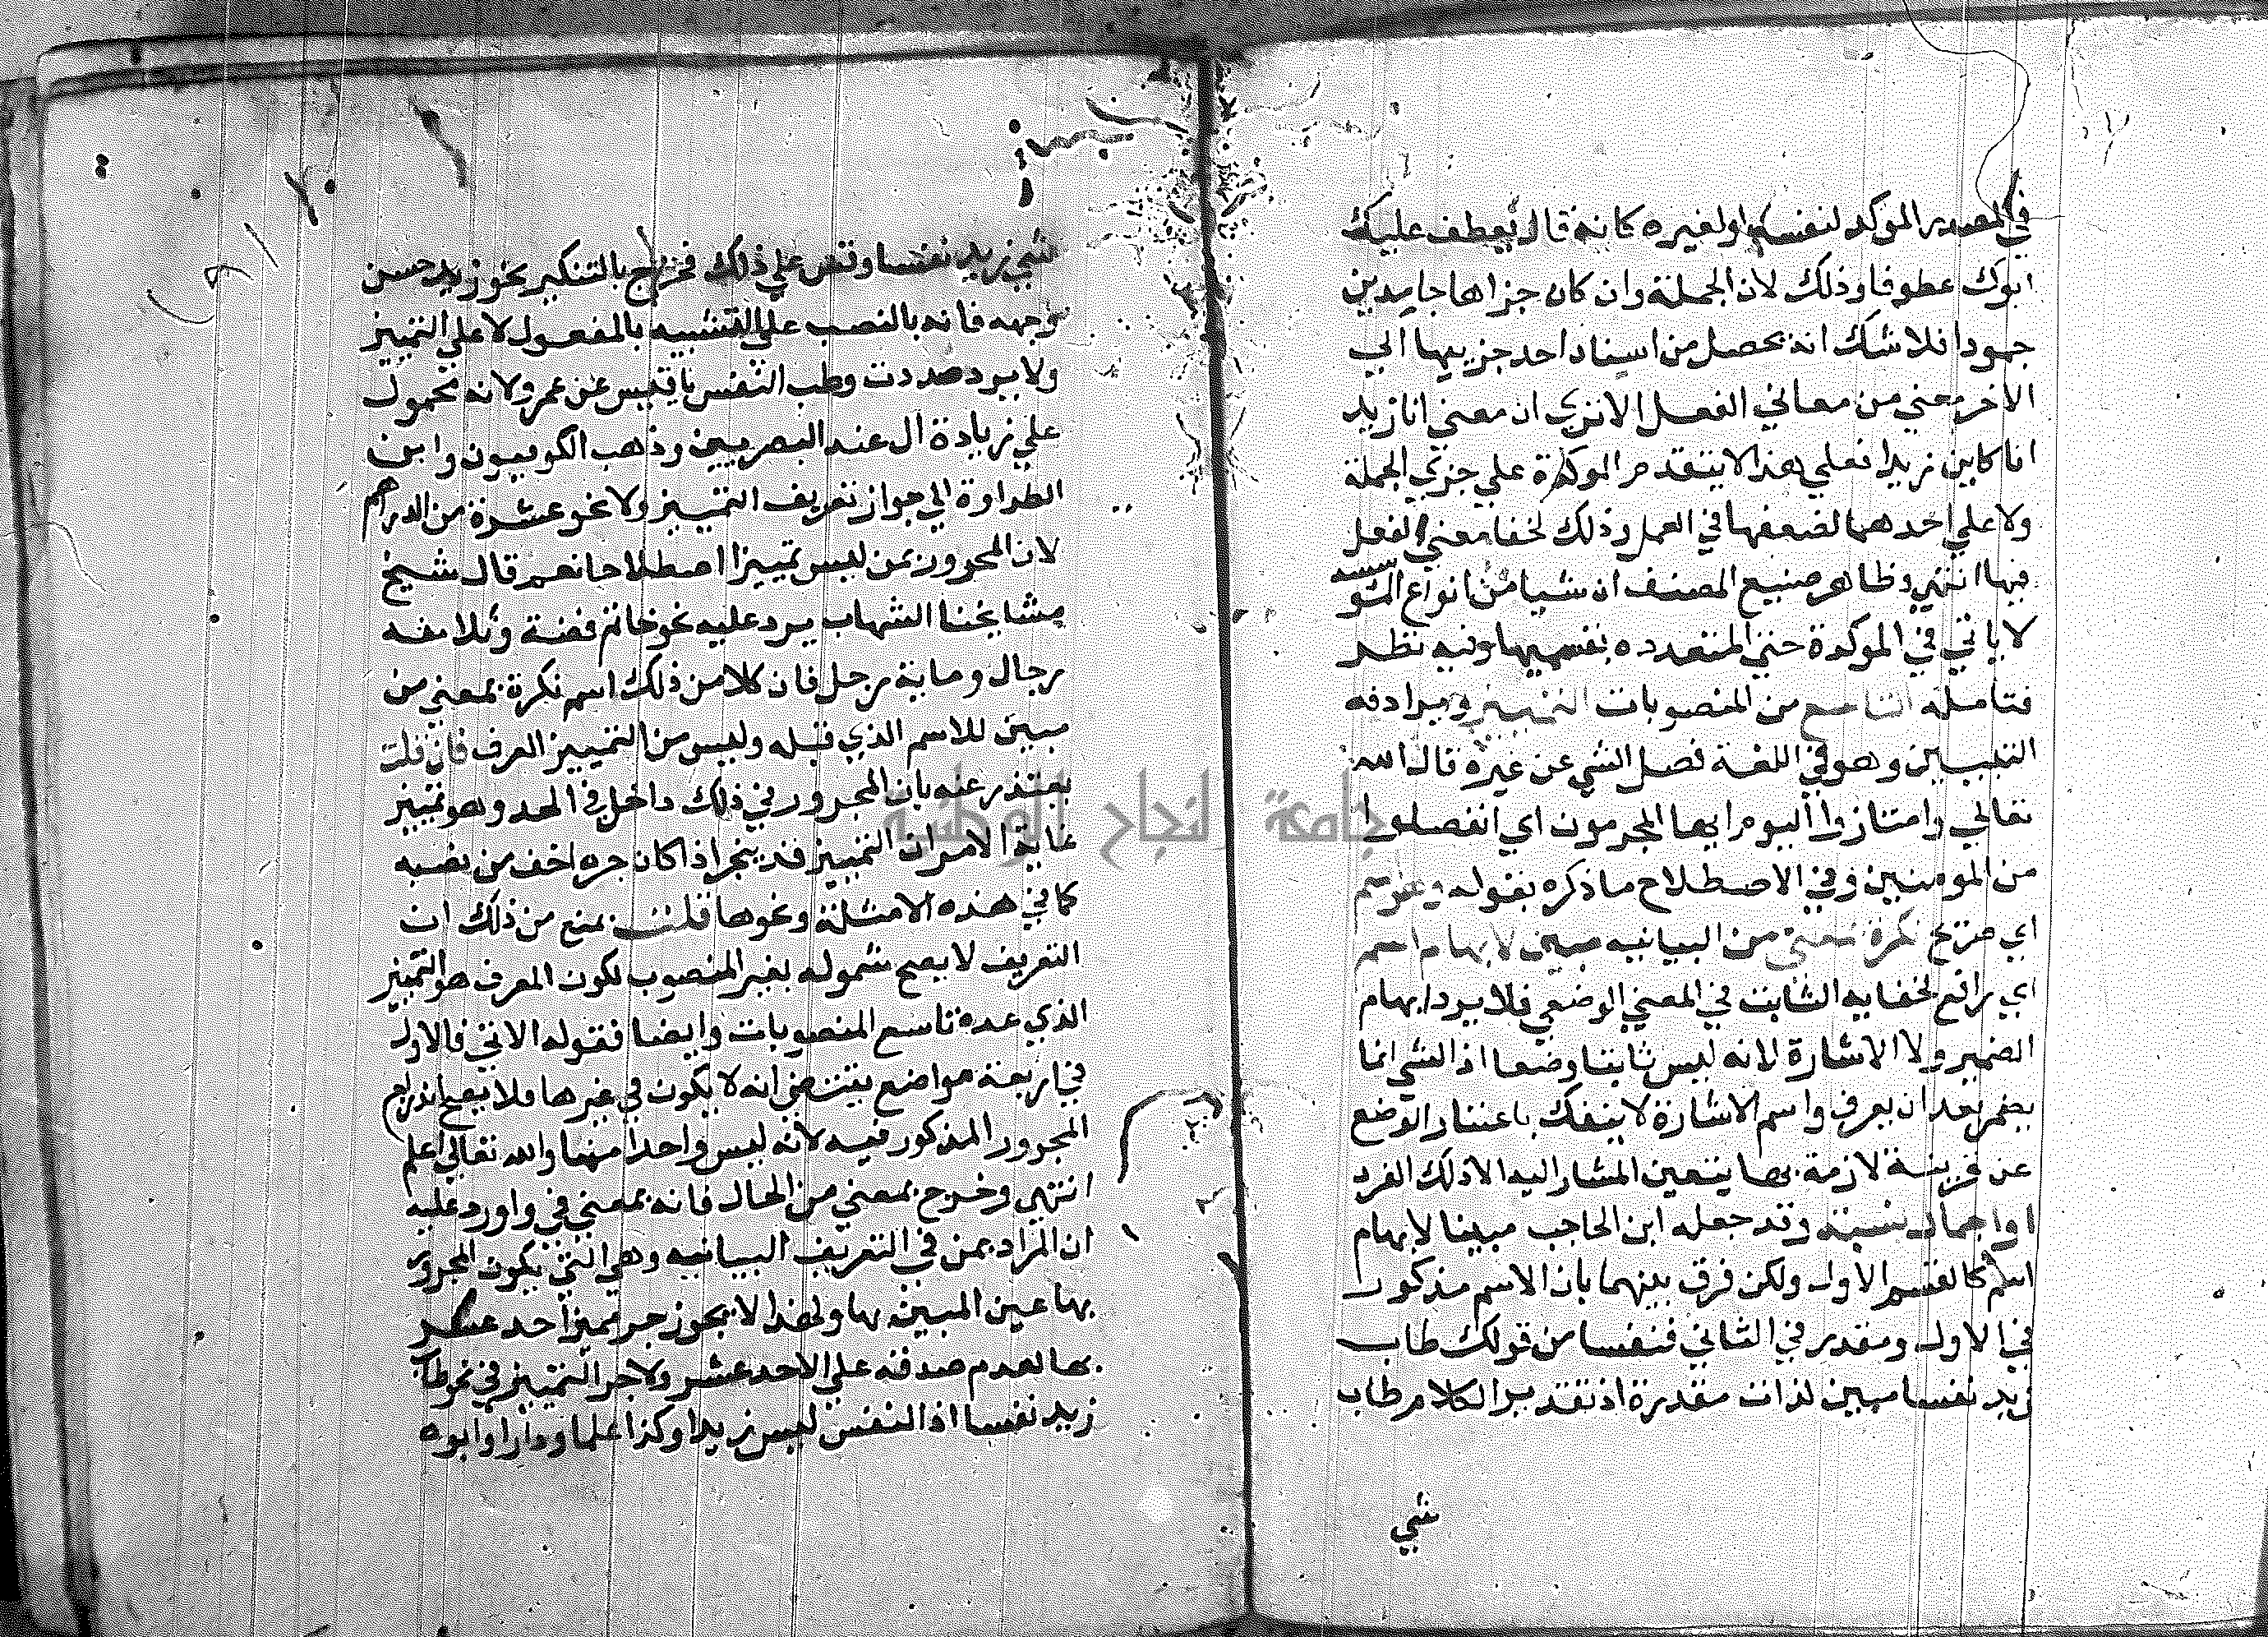 في المصدر الموكد لنفسه او لغيره كانه قال يعطف عليك
ابوك عطوفا وذلك لان الجملة وان كان جزاها جامدين
جمودا فلا شك انه يحصل من اسناد احد جزييها الي
الاخر معني من معاني الفعل الا تري ان معني انا زيد
انا كاين زيدا فعلي هذا لا يتقدم الموكدة علي جزي الجملة
ولا علي احدهما لضعفها في العمل وذلك لخفا معني الفعل
فيها انتهي وظاهر صنيع المصنف ان شيا من انواع
لا ياتي في الموكدة حتي المتعدده بقسميها وفيه نظر
فتامله التاسع من المنصوبات التمييز ويرادفه
التبيين وهو في اللغة فصل الشي عن غيره قال الله
تعالي وامتازوا اليوم ايها المجرمون اي انفصلوا
من المومنين وفي الاصطلاح ما ذكره بقوله وهو اسم
اي صريح نكرة بمعني من البيانيه مبين لابهام اسم
اي رافع لخفايه الثابت في المعني الوضعي فلا يرد ابهام
الضمير ولا الاشارة لانه ليس ثابتا وضعا اذ الشي انما
يضمر بعد ان يعرف واسم الاشارة لا ينفك باعتبار الوضع
عن قرينة لازمة بها يتعين المشار اليه الا ذلك الفرد
او اجمال نسبة وقد جعله ابن الحاجب مبينا لابهام
اسم كالقسم الاول ولكن فرق بينهما بان الاسم مذكور
في الاول ومقدر في الثاني فنفسا من قولك طاب
زيد نفسا مبين لذات مقدرة اذ تقدير الكلام طاب
شي
شي زيد نفسا وقس علي ذلك فخرج بالتنكير نحو زيد حسن
وجهه فانه بالنصب علي التشبيه بالمفعول لا علي التمييز
ولا يرد صددت وطبت النفس يا قيس عن عمرو لانه محمول
علي زيادة ال عند البصريين وذهب الكوفيون وابن
الطراوة الي جواز تعريف التمييز ولا نحو عشرة من الدراهم
لان المجرور بمن ليس تمييزا اصطلاحا نعم قال شيخ
مشايخنا الشهاب يرد عليه نحو خاتم فضة وثلاثة
رجال وماية رجل فان كلا من ذلك اسم نكرة بمعني من
مبين للاسم الذي قبله وليس من التمييز العرف فان قلت
يعتذر عنه بان المجرور في ذلك داخل في الحد وهو تمييز
غاية الامر ان التمييز قد ينجر اذا كان جره اخف من نصبه
كما في هذه الامثلة ونحوها قلت يمنع من ذلك ان
التعريف لا يصح شموله لغير المنصوب لكون المعرف هو التمييز
الذي عده تاسع المنصوبات وايضا فقوله الاتي فالاول
في اربعة مواضع يقتضي انه لا يكون في غيرها فلا يصح اندراج
المجرور المذكور فيه لانه ليس واحدا منها والله تعالي اعلم
انتهي وخرج بمعني من الحال فانه بمعني في واورد عليه
ان المراد بمن في التعريف البيانيه وهي التي يكون المجرور
بها عين المبين بها ولهذا لا يجوز جر مميز احد عشر
بها لعدم صدقه علي الاحد عشر ولا جر التمييز في نحو طاب
زيد نفسا اذ النفس ليس زيدا وكذا علما ودارا وابوه
جامعة النجاح الوطنية